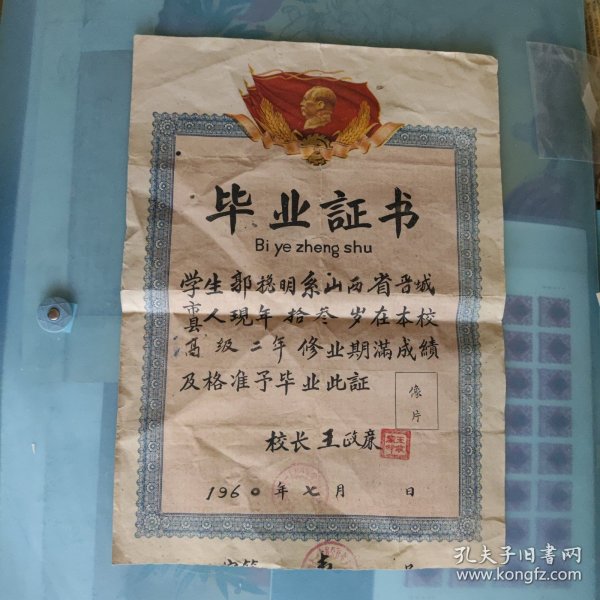 毕业証书
Bi ye zheng shu
学生郭稳明系山西省晋城
市县人現年拾叁岁在本校
高级二年修业期滿成績
及格准予毕业此証
像片
校长王政康
1960年七月 日
字第 号
孔夫子旧書网
www.kongfz.com